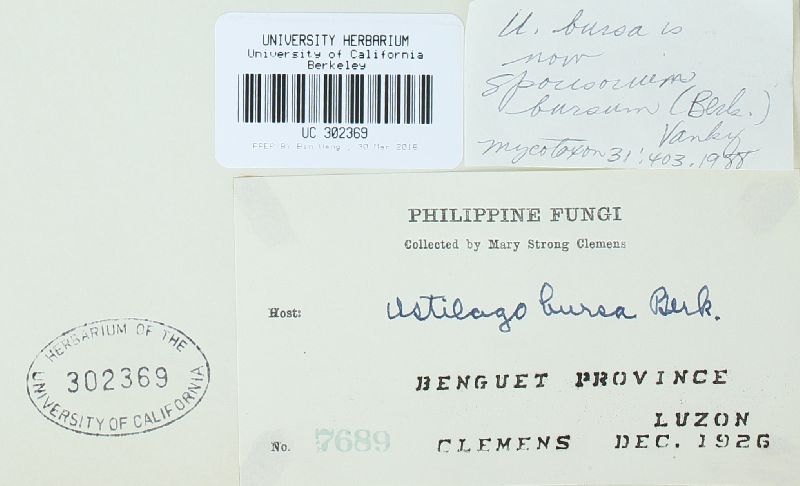 UNIVERSITY HERBARIUM
University of California
Berkeley
UC 302369
U. bursa is
now
Sporisorium
bursum (Berk.)
Vanky
Mycotaxon 31:403. 1988
PHILIPPINE FUNGI
Collected by Mary Strong Clemens
Host: Ustilago bursa Berk.
BENGUET PROVINCE
LUZON
No. 7689 CLEMENS DEC. 1926
HERBARIUM OF THE
302369
UNIVERSITY OF CALIFORNIA